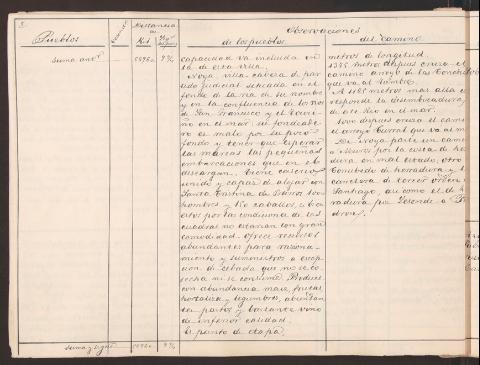 5.
Pueblos
Distancia
en
Kil.
Observaciones
de los pueblos.
del camino
suma antr.
capacidad va incluida en
la de esta villa.
Noya, villa cabeza de par
tido judicial situada en el
fondo de la ria de su nombre
y en la confluencia de los rios
de San Francisco y el
en el mar. su fondeade
ro es malo por su poco
fondo y tener que esperar
las mareas las pequeñas
embarcaciones que en el
descargan. Tiene caserio
unido y capaz de alojar con
Santa Cristina de Barro 800
hombres y 150 caballos, u bi
en estos por las condiciones de las
cuadras no estarian con gran
comodidad. Ofrece recursos
abundantes para raciona-
miento y suministros a escep
cion de cebada que no se co
secha ni se consume. Produce
con abundancia maiz, frutas
hortaliza y legumbres, abundan
tes pastos y bastante vino
de inferior calidad.
Es punto de etapa.
metros de longitud.
metros despues cruza el
camino arroyo de las
que va al Tambre.
A 1185 metros mas alla co
rresponde la desembocadura
de este Rio en el mar.
1000 despues cruza el camino
el arroyo Curral que va al m
De Noya parte un camino
a Muros por la costa de herra
dura en mal estado, otro
de herradura y la
carretera de tercer orden a
Santiago, asi como el de he
rradura por Lesende a Pa
dron.
suma y sigue